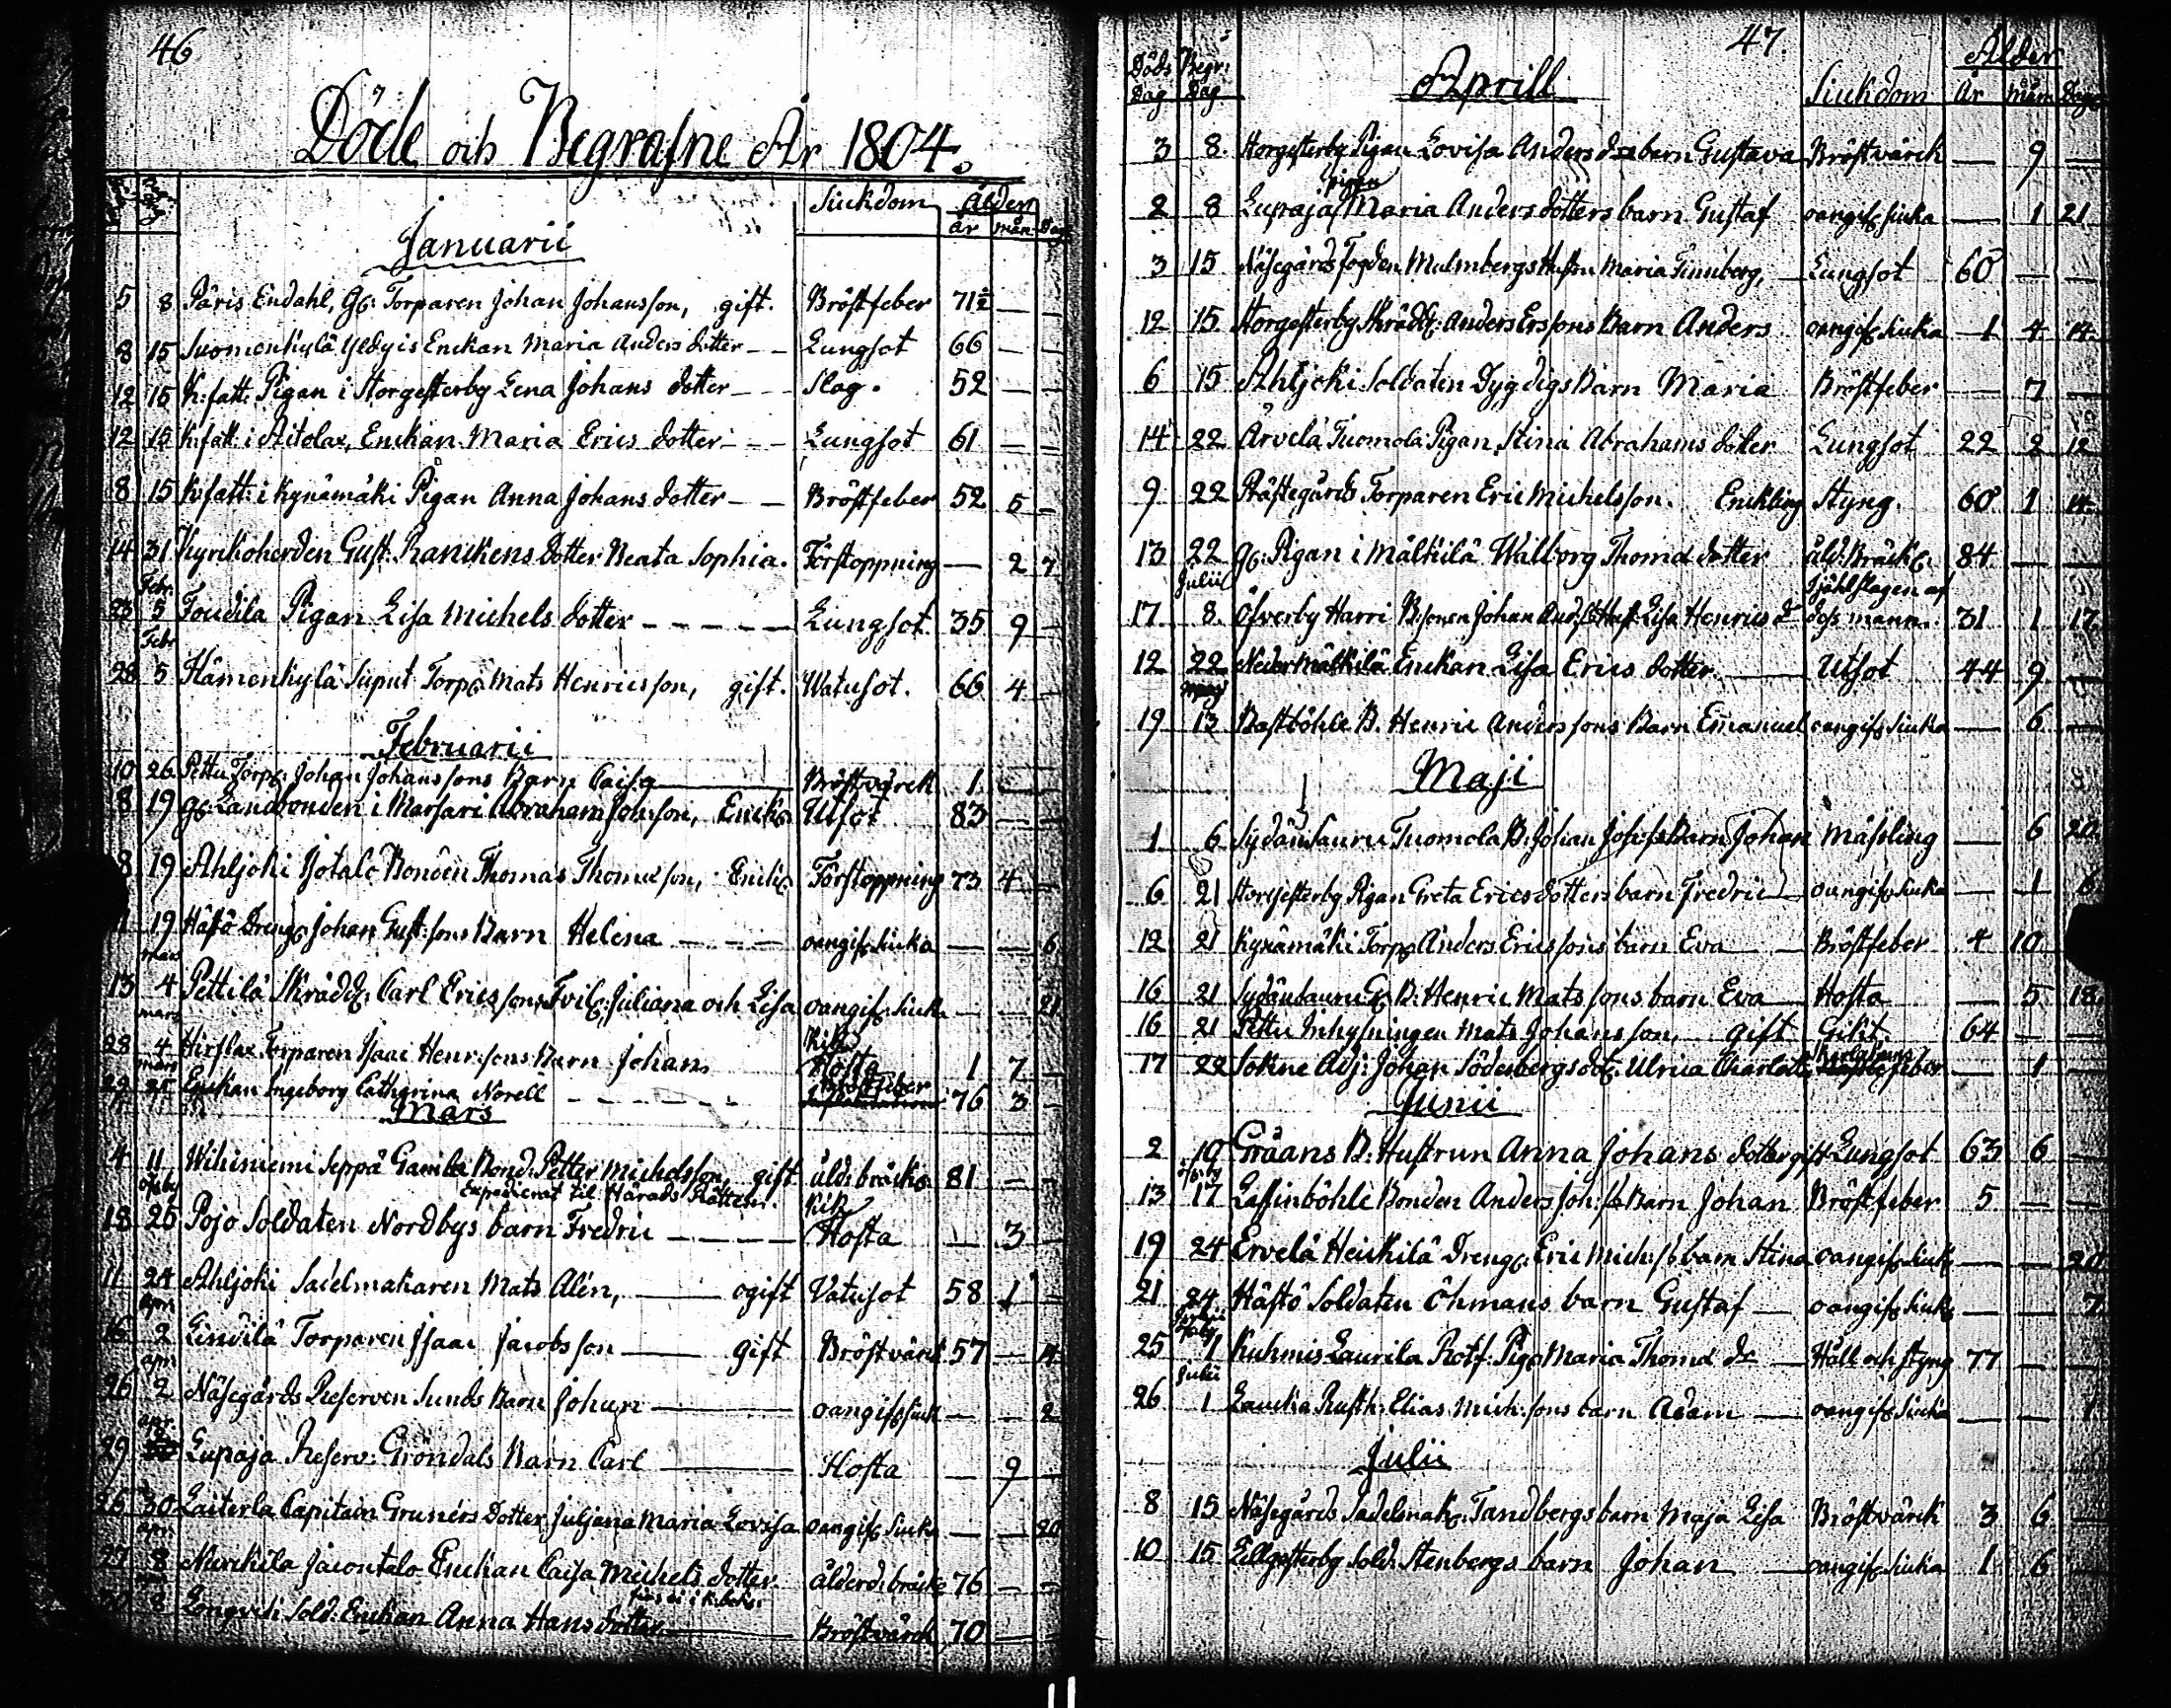 46
Döde och Begrafne År 1804.
Siukdom Ålder
år mån Dag
Januarii
5 8 Päris Endahl, Gl: Torparen Johan Johansson, gift. Bröstfeber 71½ — —
8 15 Suomenkylä Yldgis Enckan Maria Anders dotter — — Lungsot 66 — —
12 15 K: fatt: Pigan i Storgesterby Lena Johans dotter — — Slag. 52 — —
12 15 K: fatt: i Aitolax, Enckan Maria Erics dotter — — Lungsot 61 — —
8 15 K: fatt: i Kynämäki Pigan Anna Johans dotter — — Bröstfeber 52 5 —
14 31 Kyrckoherden Gust: Ranckens dotter Beata Sophia. Förstoppning — 2 7
Febr.
23 5 Toudila Pigan Lisa Michels dotter — — — — — Lungsot 35 9 —
Febr
28 5 Hämenkylä Suput Torp: Mats Henricsson, gift. Watusot. 66 4 —
Februarii
10 26 Pettu Torp: Johan Johanssons Barn Caisa — Bröstvärck 1 — —
8 19 gl: Landbonden i Marsari Abraham Johsson, Enckl: Utsot 83 — —
8 19 Ahljoki Yotalo Bonden Thomas Thomasson, Enckl: Förstoppning 73 4 —
11 19 Hästö Dreng: Johan Gust:sons Barn Helena — — — oangif: Siuka — — 6
mars
13 4 Pettilä Skrädd: Carl Ericssons Tvil: Juliana och Lisa oangif: Siuk: — — 21
mars
28 4 Hirslax Torparen Isaac Henr:sons Barn Johan. Kik Hosta 1 7 —
mars
29 25 Enckan Ingeborg Cathrina Norell — — — — — Bröstfeber 76 3 —
Mars
4 11 Wihiniemi Seppä Gamla Bond: Petter Michelsson, gift åld: bräckl: 81 — —
Expedierat til Härads Rätten.
18 25 Pojo Soldaten Nordbys barn Fredric — — — — Kik Hosta — 3 —
11 24 Ahljoki Sadelmakaren Mats Alén, — ogift Vatusot 58 1 —
apr.
16 2 Lindilä Torparen Isaac Jacobsson — gift Bröstvärk 57 — 14
apr.
26 2 Näsegårds Reserven Sunds Barn Johan — oangif: siuk — — 2
apr.
29 Lupaja Reserv: Gröndals Barn Carl — Hosta — 9 —
26 30 Laiterla Capitain Grunérs Dotter Juljana Maria Lovisa oangif: Siuka — — 20
apr.
27 8 Nurckila Jacontalo Enckan Caisa Michels dotter. ålderd: bräckl: 76 — —
8 Sold: Enckan Anna Hans dotter — Bröstvärck 70 —
47.
Döds Dag Begr: Dag Aprill Siukdom Ålder
År mån Dag
3 8. Storgesterby Pigan Lovisa Anders d:r barn Gustava Bröstvärck — 9 —
pigan
2 8 Lupaja Maria Anders dotters barn Gustaf oangif: Siuka — 1 21
3 15 Näsegårds fogden Malmbergs Hustru Maria Finnberg, Lungsot 60 — —
12 15 Storgesterby Skrädd: Anders Erssons Barn Anders oangif: Siuka 1 4 14.
6 15 Ahljoki Soldaten Dygdigs Barn Maria Bröstfeber — 7 —
14 22 Arvelä Tuomola Pigan Stina Abrahams dotter Lungsot 22 2 12
9 22 Prästegårds Torparen Eric Michelsson. Enckling Styng. 60 1 14.
13 22 gl: Pigan i Mälkilä Walborg Thomæ dotter åld: Bräckl: 84 — —
Julii
17 8. Öfverby Harri B:sonen Johan And:s Hust: Lisa Henrics d:r Ihjählslagen af dess mann. 31 1 17.
12 22 Neder Mälkilä Enckan Lisa Erics dotter. — Utsot 44 9 —
Maji
19 13 Bastböhle B. Henric Anderssons Barn Emanuel oangif: Siuka — 6 —
Maji
1 6 Sydänlauru Tuomola B: Johan Johss: Barn Johan Mässling — 6 20
6 21 Storgesterby Pigan Greta Erics dotters barn Fredric oangif: Siuka — 1 6
12 21 Kynämäki Torp: Anders Ericssons barn Eva — Bröstfeber 4 10
16 21 Sydänlauru G: B: Henric Matssons barn Eva — Hosta — 5 18.
16 21 Pettu Inhysningen Mats Johansson, gift Gikt 64 — —
17 22 Sokne Adj: Johan Söderbergs dot: Ulrica Charlotta feber — 1 —
Junii
2 10 Gråans B: Hustrun Anna Johans dotter gift Lungsot 63 6
13 17 Lassinböhle Bonden Anders Joh:ss Barn Johan Bröstfeber 5 — —
19 24 Ervelä Heickilä Dreng: Eric Mich:ss barn Stina oangif: Siuk: — — 20
21 24 Hästö Soldaten Öhmans barn Gustaf — oangif: Siuk: — — 7
25 1 Kuhmis Laurila Rotf: Pig: Maria Thomæ d:r — Håll och styng 77 — —
Julii
26 1 Laucka Rusth: Elias Mich:sons barn Adam — oangif: Siuka — — 1
Julii
8 15 Näsegårds Sadelmak: Tandbergs barn Maja Lisa Bröstvärck 3 6 —
10 15 Lillgesterby Sold: Stenbergs barn Johan — oangif: Siuka 1 6